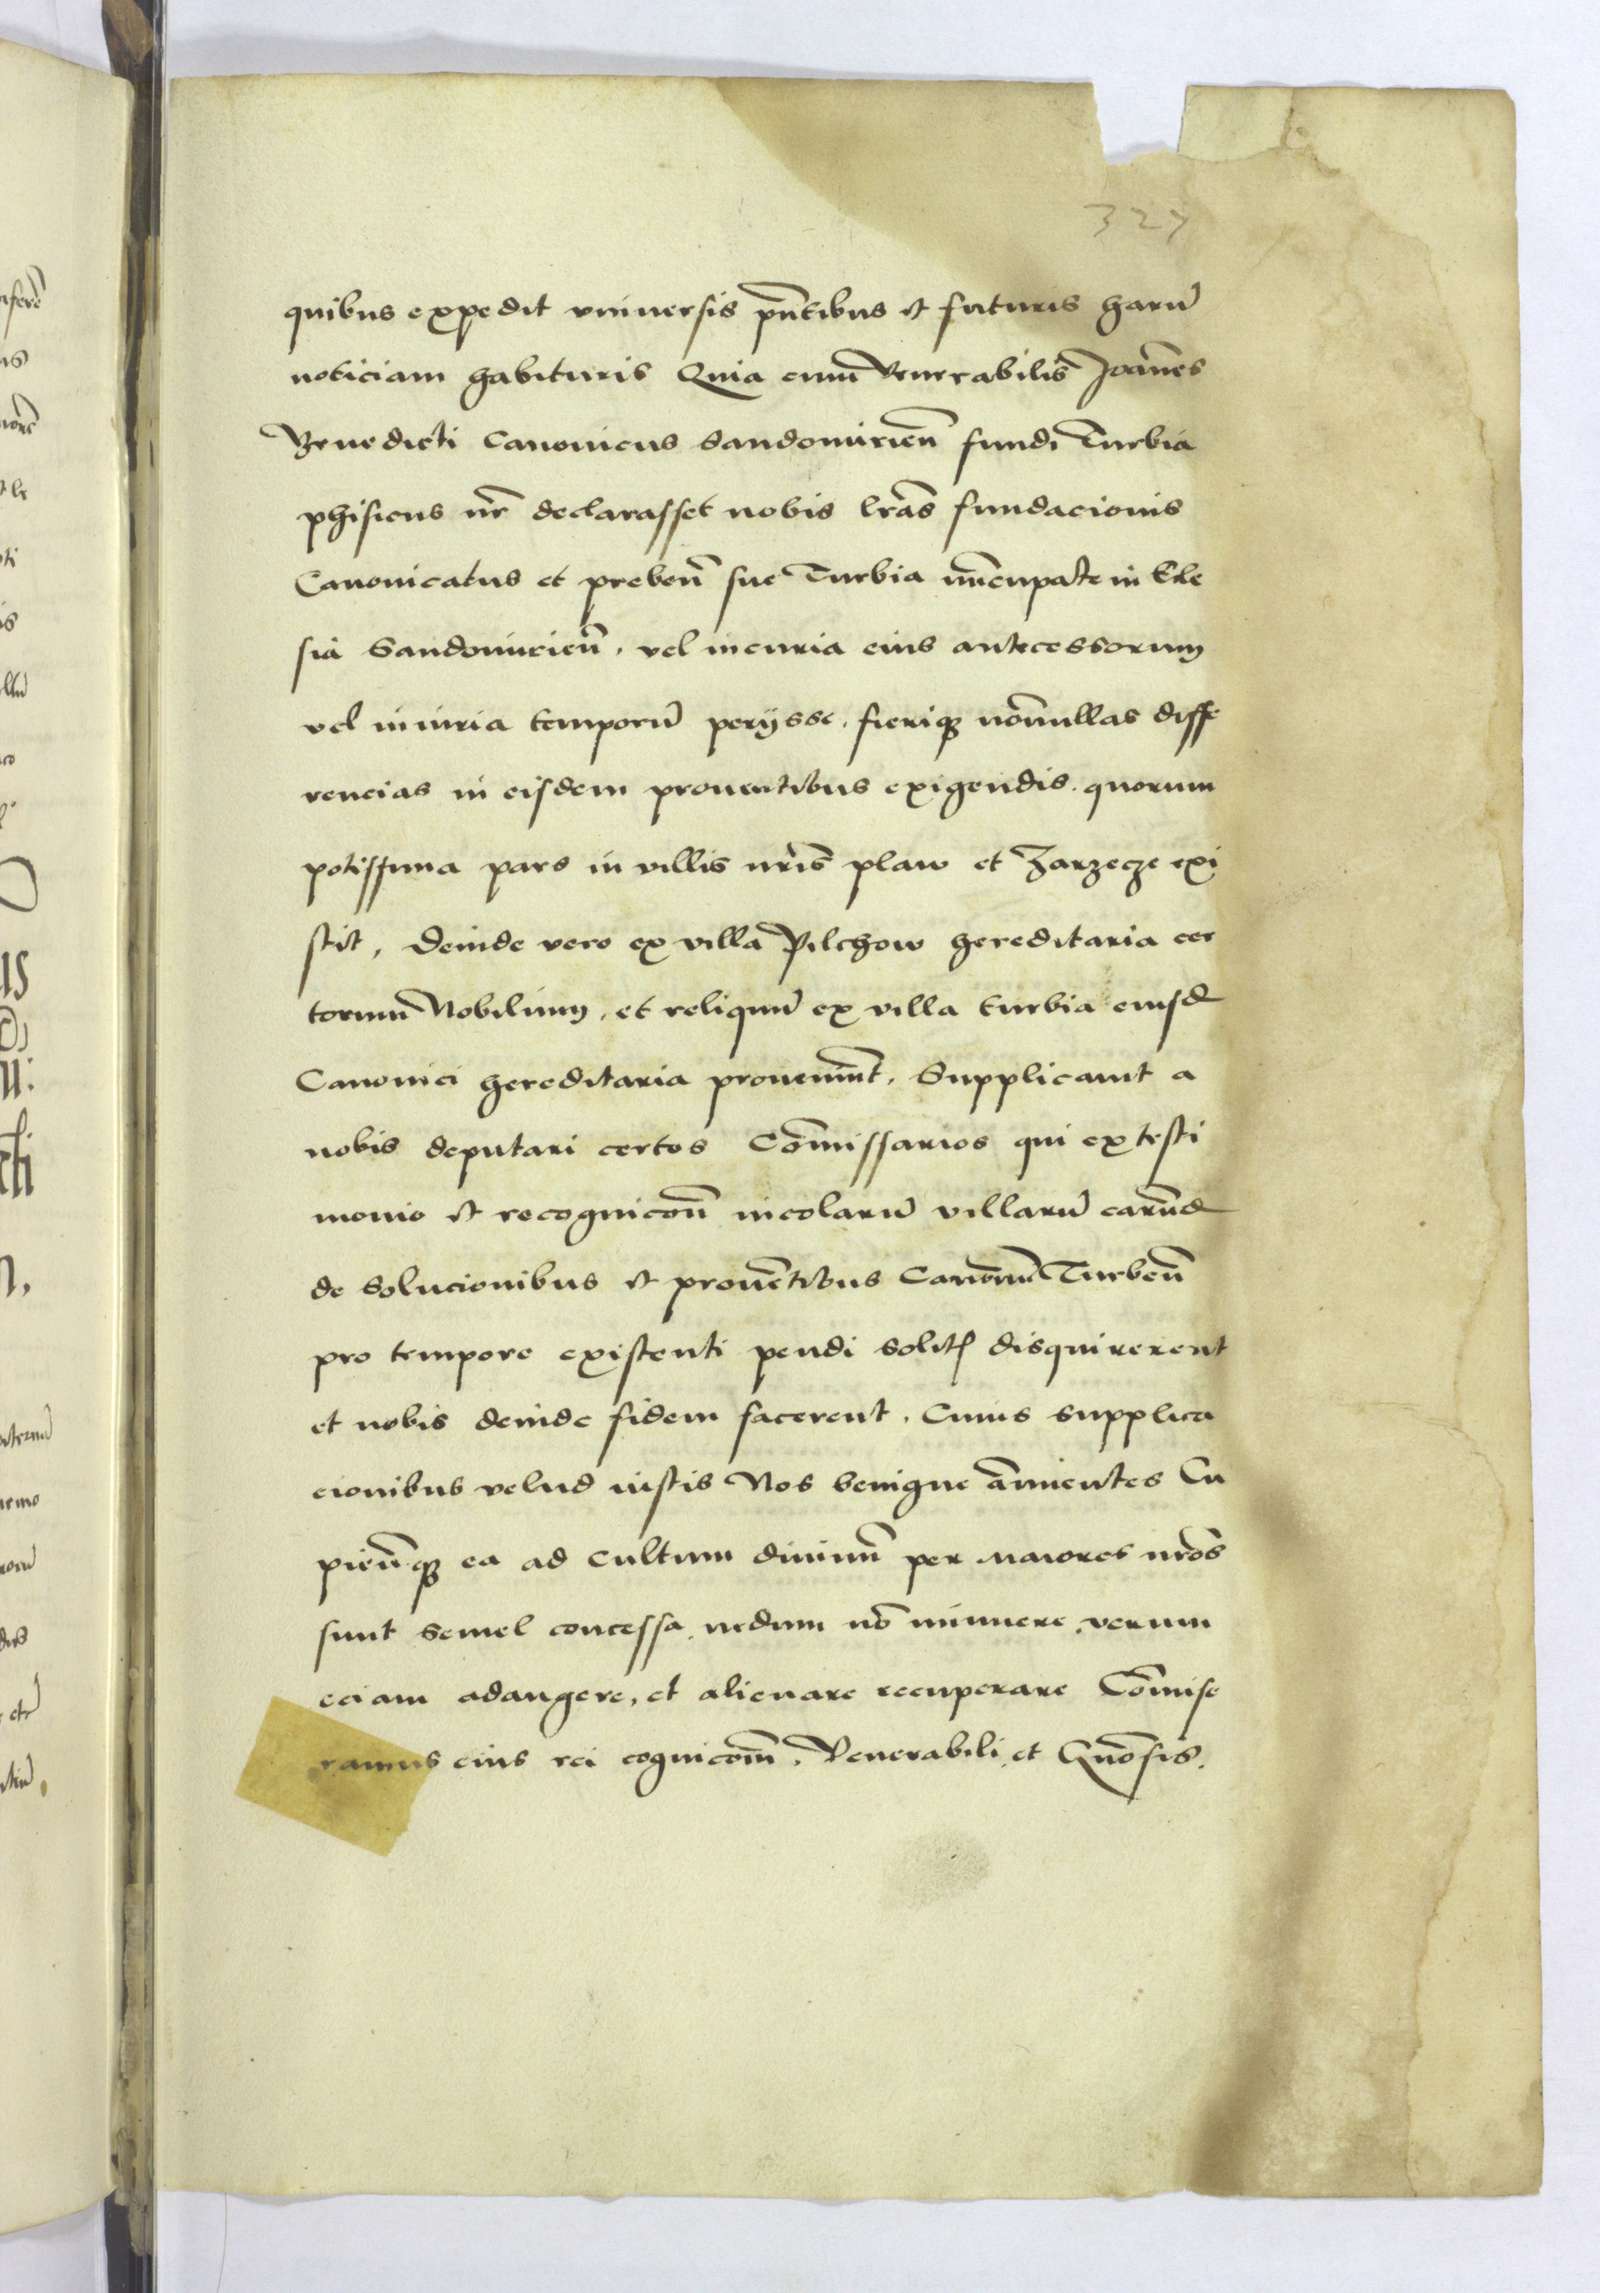 327
quibus expedit vniuersis pn̄tibus et futuris harū
noticiam habituris Quia cum Venerabilis Joannēs
Benedicti Canonicus Sandomirien̄ fundi Turbia
phisicus nr̄ declarasset nobis lrās fundacionis
Canonicatus et preben̄ sue Turbia nūcupate in Ecle
sia Sandomirien̄, vel incuria eius antecessorum
vel iniuria temporū perijsse, fieriqȝ nōnullas diffe
rencias in eisdem prouentibus exigendis. quorum
potissima pars in villis nrīs plaw et Zarzecze exi
stit, deinde vero ex villa Pilchow hereditaria cer
torum Nobilium, et reliquū ex villa turbia eiusd
Canonici hereditaria proueniūt, Supplicauit a
nobis deputari certos Cōmissarios qui ex testi
monio et recognicōn̄ incolarū villarū earūd
de solucionibus et prouētibus Canonico Turben̄
pro tempore existenti pendi solit̄ disquirerent
et nobis deinde fidem facerent, Cuius supplica
cionibus velud iustis Nos benigne ān̄uentes Cu
pien̄qȝ ea ad cultum diuinū per maiores nrōs
sunt semel concessa, nedum nō minuere, verum
eciam adaugere, et alienare recuperare Cōmise
ramus eius rei cognicōm̄, Venerabili, et Gn̄osis.